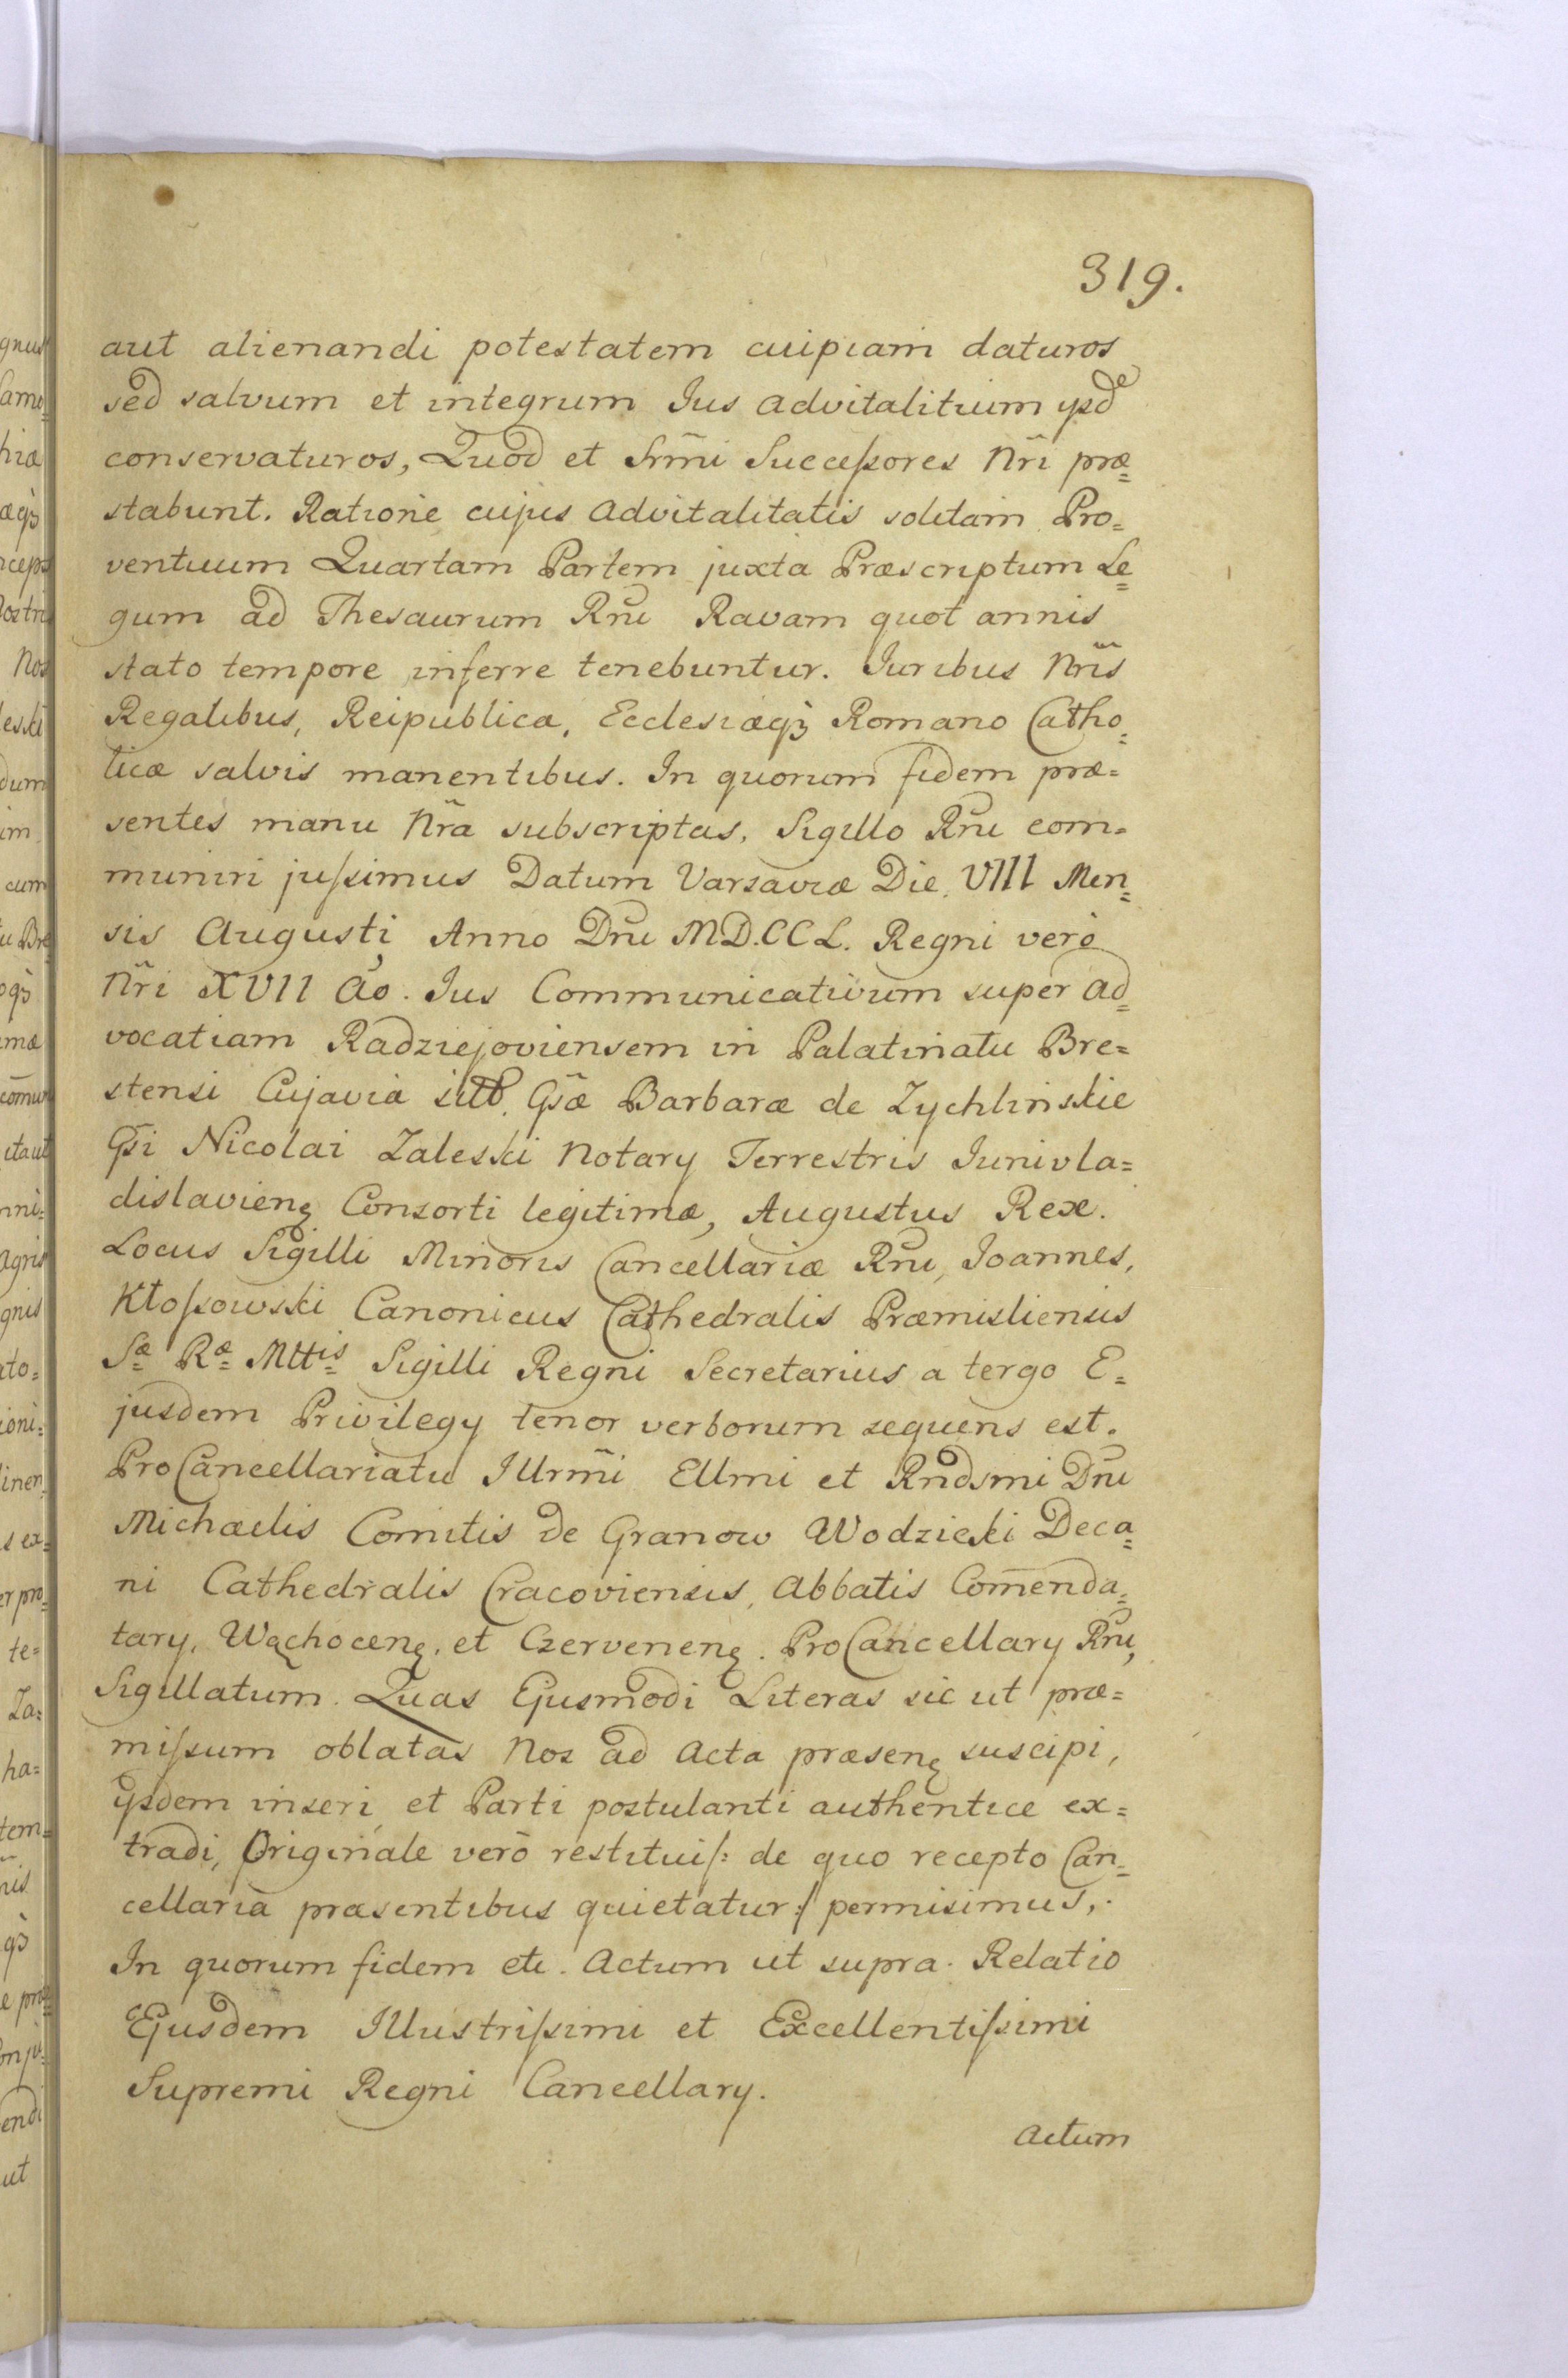 319.
aut alienandi potestatem cuipiam daturos
sed salvum et integrum Jus advitalitium ysdē
conservaturos, Quod et Srm̃i Succeſsores Nr̃i præ=
stabunt. Ratione cujus advitalitatis solitam Pro=
ventuum Quartam Partem juxta Præscriptum Le=
gum ad Thesaurum Rn̄i Ravam quot annis
stato tempore inferre tenebuntur. Juribus Nr̃is
Regalibus, Reipublicæ, Ecclesiæqȝ Romano Catho=
licæ salvis manentibus. In quorum fidem præ=
sentes manu Nr̃a subscriptas, Sigillo Rn̄i com=
muniri juſsimus Datum Varsaviæ Die VIII Men=
sis Augusti, Anno Dn̄i MD.CCL. Regni verò
Nr̃i XVII Ao. Jus Communicativum super ad=
vocatiam Radziejoviensem in Palatinatu Bre=
stensi Cujaviæ Gsæ Barbaræ de Zychlinskie
Gsi Nicolai Zaleski Notary Terrestris Junivla=
dislavienȩ Consorti legitimæ, Augustus Rex.
Locus Sigilli Minoris Cancellariæ Rn̄i, Joannes,
Kłoſsowski Canonicus Cathedralis Præmisliensis
Sæ Ræ Mttis Sigilli Regni Secretarius a tergo E=
jusdem Privilegy tenor verborum sequens est.
ProCancellariatu Illrm̃i Ellmi et Rndsmi Dn̄i
Michaelis Comitis de Granow Wodzicki Deca=
ni Cathedralis Cracoviensis, Abbatis Com̄enda=
tary, Wąchocenȩ. et Czervenenȩ. ProCancellary Rn̄i,
Sigillatum. Quas Ejusmodi Literas sic ut præ=
miſsum oblatas Nos ad Acta præsenȩ suscipi,
ysdem inseri, et Parti postulanti authentice ex=
tradi, Originale verò restitui/: de quo recepto Can=
cellaria præsentibus quietatur :/ permisimus,.
In quorum fidem etc. Actum ut supra. Relatio
Ejusdem Illustriſsimi et Excellentiſsimi
Supremi Regni Cancellary.
Actum